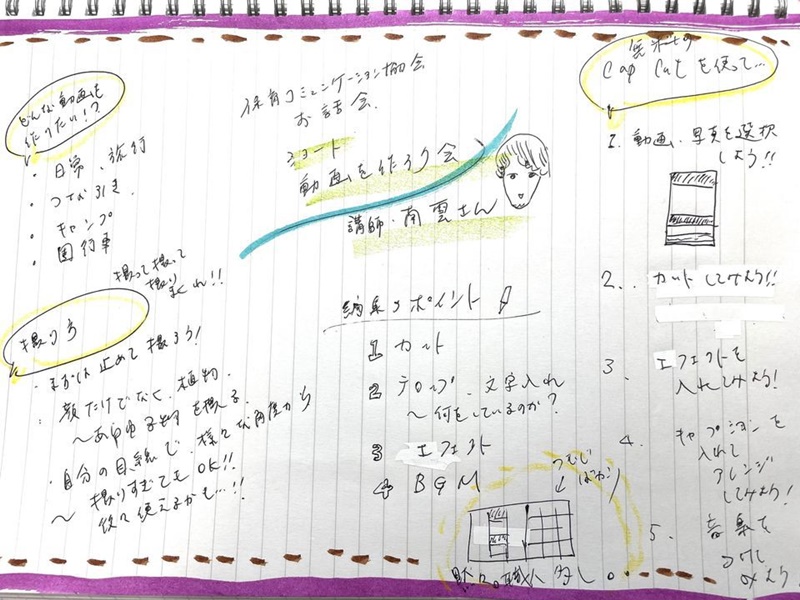 保育コミュニケーション協会
お話会.
ショート
動画を作ろう会
講師・南雲さん
どんな動画を
作りたい!?
・日常、旅行
・つな引き.
・キャンプ
・園行事
撮り方
撮って撮って
撮り
まくれ!!
・まずは止めて撮ろう!
・顔だけでなく、植物.
〜あらゆる物を撮る.
・自分の目線で、様々な角度から
〜撮りすぎてもOK!!
後で使えるかも…!!
編集のポイント
1 カット
2 テロップ.文字入れ
〜何をしているのか?
3 エフェクト
4 BGM
つむじ
ばかり
無料の
Cap Cutを使って…
1.動画、写真を選択
しよう!!
2.カットしてみよう!!
3.エフェクトを
入れてみよう!
4.キャプションを
入れて
アレンジ
してみよう!
5.音楽を
つけて
みよう